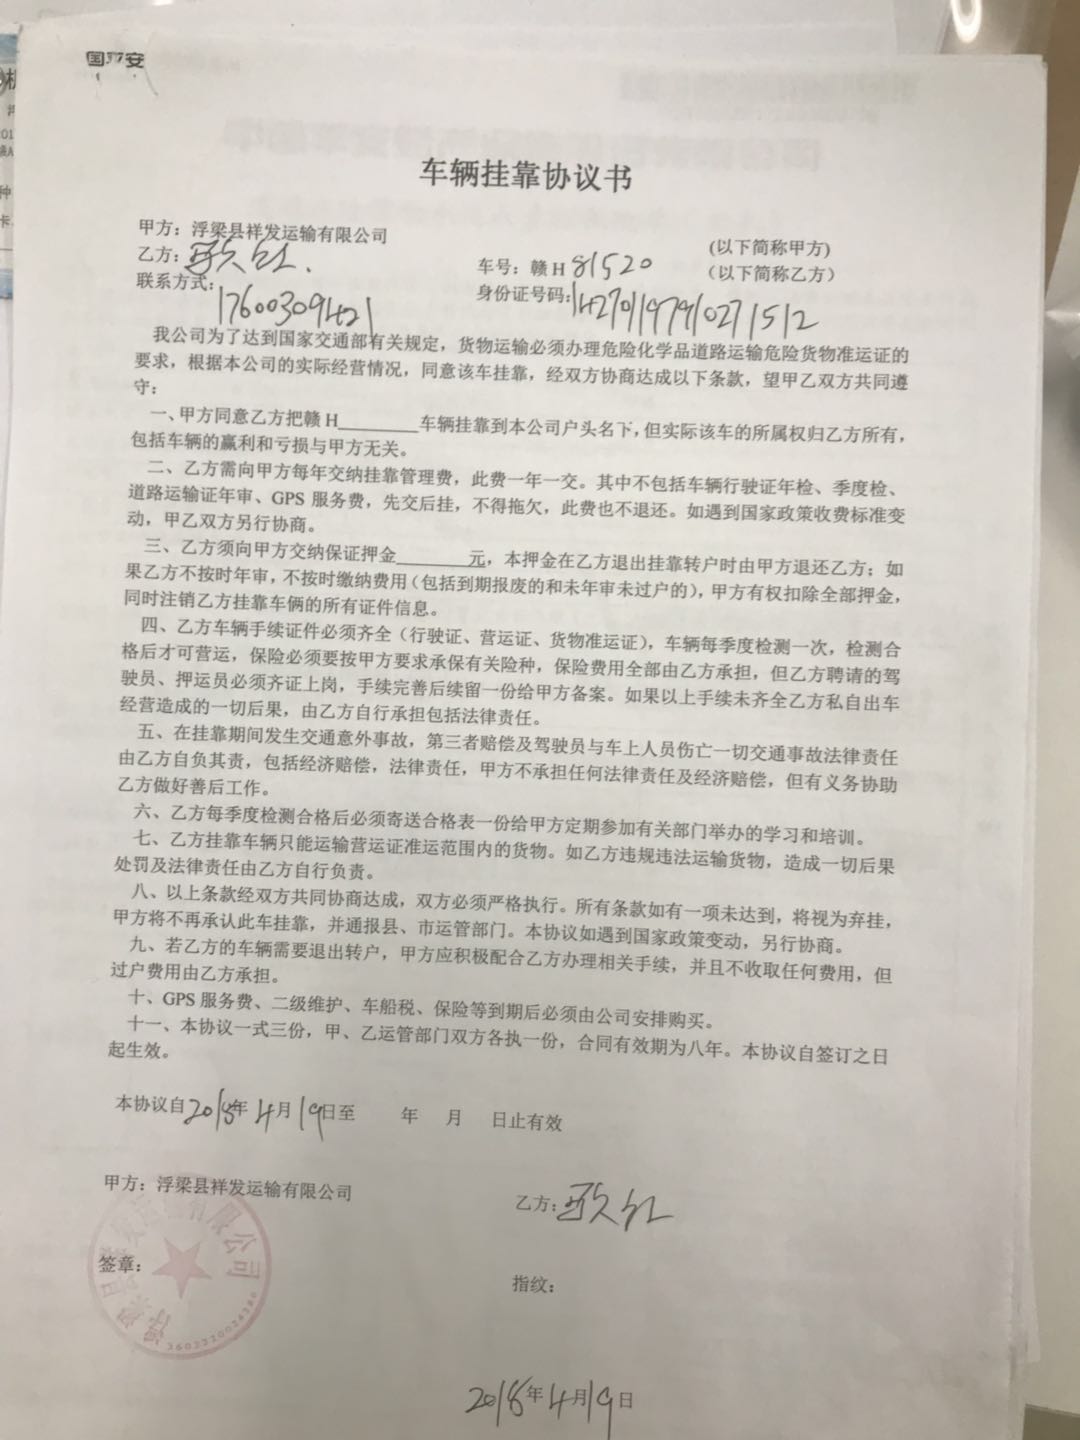 车辆挂靠协议书
甲方：浮梁县祥发运输有限公司 (以下简称甲方)
乙方： 车号：赣 H 81520 （以下简称乙方）
联系方式：17600309421 身份证号码：142701197910271512
我公司为了达到国家交通部有关规定，货物运输必须办理危险化学品道路运输危险货物准运证的
要求，根据本公司的实际经营情况，同意该车挂靠，经双方协商达成以下条款，望甲乙双方共同遵
守：
一、甲方同意乙方把赣 H________车辆挂靠到本公司户头名下，但实际该车的所属权归乙方所有，
包括车辆的赢利和亏损与甲方无关。
二、乙方需向甲方每年交纳挂靠管理费，此费一年一交。其中不包括车辆行驶证年检、季度检、
道路运输证年审、GPS 服务费，先交后挂，不得拖欠，此费也不退还。如遇到国家政策收费标准变
动，甲乙双方另行协商。
三、乙方须向甲方交纳保证押金________元，本押金在乙方退出挂靠转户时由甲方退还乙方；如
果乙方不按时年审，不按时缴纳费用（包括到期报废的和未年审未过户的），甲方有权扣除全部押金，
同时注销乙方挂靠车俩的所有证件信息。
四、乙方车辆手续证件必须齐全（行驶证、营运证、货物准运证），车辆每季度检测一次，检测合
格后才可营运，保险必须要按甲方要求承保有关险种，保险费用全部由乙方承担，但乙方聘请的驾
驶员、押运员必须齐证上岗，手续完善后续留一份给甲方备案。如果以上手续未齐全乙方私自出车
经营造成的一切后果，由乙方自行承担包括法律责任。
五、在挂靠期间发生交通意外事故，第三者赔偿及驾驶员与车上人员伤亡一切交通事故法律责任
由乙方自负其责，包括经济赔偿，法律责任，甲方不承担任何法律责任及经济赔偿，但有义务协助
乙方做好善后工作。
六、乙方每季度检测合格后必须寄送合格表一份给甲方定期参加有关部门举办的学习和培训。
七、乙方挂靠车辆只能运输营运证准运范围内的货物。如乙方违规违法运输货物，造成一切后果
处罚及法律责任由乙方自行负责。
八、以上条款经双方共同协商达成，双方必须严格执行。所有条款如有一项未达到，将视为弃挂，
甲方将不再承认此车挂靠，并通报县、市运管部门。本协议如遇到国家政策变动，另行协商。
九、若乙方的车辆需要退出转户，甲方应积极配合乙方办理相关手续，并且不收取任何费用，但
过户费用由乙方承担。
十、GPS 服务费、二级维护、车船税、保险等到期后必须由公司安排购买。
十一、本协议一式三份，甲、乙运管部门双方各执一份，合同有效期为八年。本协议自签订之日
起生效。
本协议自2018年4月19日至 年 月 日止有效
甲方：浮梁县祥发运输有限公司 乙方：
签章： 指纹：
2018年4月19日